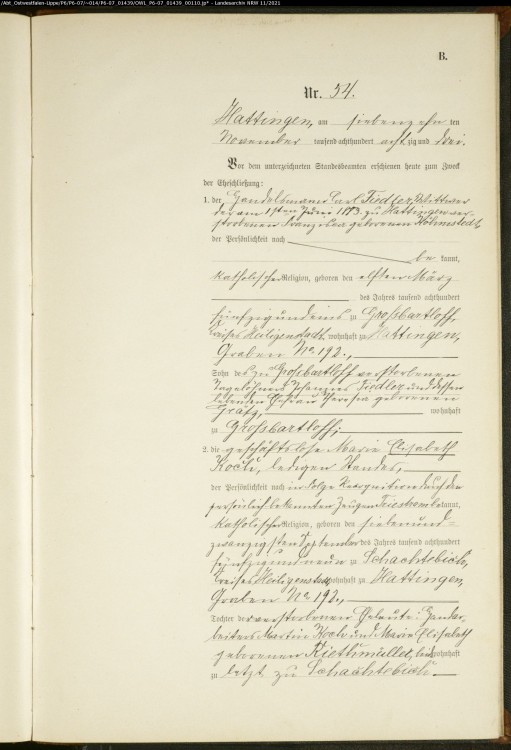 /Abt_Ostwestfalen-Lippe/P6/P6-07/~014/P6-07_01439/OWL_P6-07_01439_00110.jp* - Landesarchiv NRW 11/2021
B.
Nr. 54.
Hattingen, am siebenzehn ten
November tausend achthundert acht zig und drei.
Vor dem unterzeichneten Standesbeamten erschienen heute zum Zweck
der Eheschließung:
1. der Handelsmann Carl Fiedler, Wittwer
der am 1sten Juni zu Hattingen ver-
storbenen Franziska geborenen
der Persönlichkeit nach
be kannt,
katholischer Religion, geboren den elften März
des Jahres tausend achthundert
fünfzig und eins zu Grossbartloff,
Kreises Heiligenstadt, wohnhaft zu Hattingen,
Graben No 192.,
Sohn des zu Grossbartloff verstorbenen
Tagelöhners Johannes Fiedler und dessen
lebenden Ehefrau Theresia geborenen
wohnhaft
zu Grossbartloff;
2. die geschäftslose Maria Elisabeth
Koch, ledigen Standes,
der Persönlichkeit nach in Folge Recognition durch den
persönlich bekannten Zeugen kannt,
katholischer Religion, geboren den siebenund-
zwanzigsten September des Jahres tausend achthundert
fünfzig und neun zu Schachtebich,
Kreises Heiligenstadt wohnhaft zu Hattingen,
Graben No 192.,
Tochter der verstorbenen Eheleute: Handar-
beiters Martin Koch und Maria Elisabeth
geborenen Riethmüller, wohnhaft
zu letzt zu Schachtebich